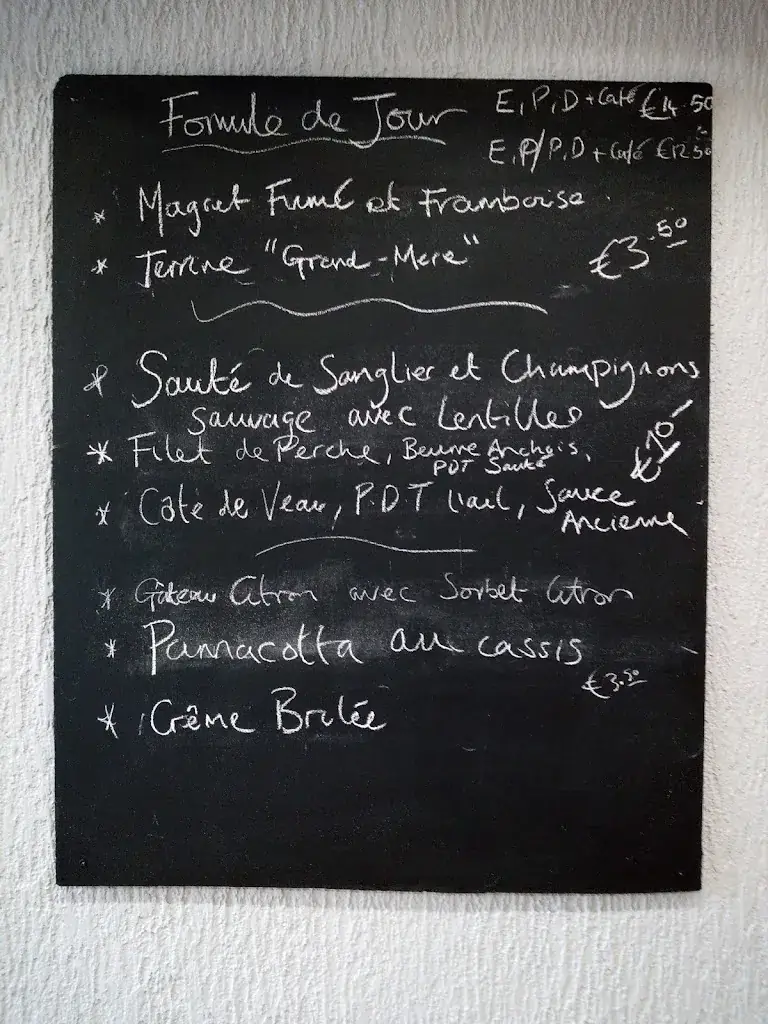 Formule de Jour
E, P, D + Café €14.50
E, P/P, D + Café €12.50
* Magret Fumé et Framboise.
* Terrine "Grand-Mere"
€3.50
* Sauté de Sanglier et Champignons
Sauvage avec Lentilles
* Filet de Perche, Beurre Anchois,
PDT Sauté
€10-
* Côte de Veau, P.D.T l'ail, Sauce
Ancienne
* Gâteau Citron avec Sorbet Citron
* Pannacotta au cassis
€3.50
* Crême Brulée